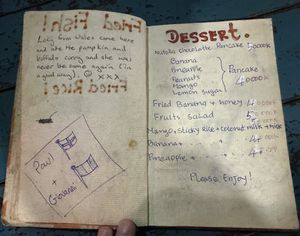 Fried Fish!
Lady from Wales came here
we ate the pumpkin and
potato curry and she was
never the same again (in
a good way). xxx
Fried Rice!
Paul
+
Giovanna
DESSERT.
Nutella chocolate Pancake 50000K
Banana
Pineapple
Peanuts
Mango
Lemon sugar
Pancake
40000K
Fried Banana + honey 40000K
Fruits salad
Mango, Sticky Rice + coconut milk + Rice
Banana
Pineapple
Please Enjoy!